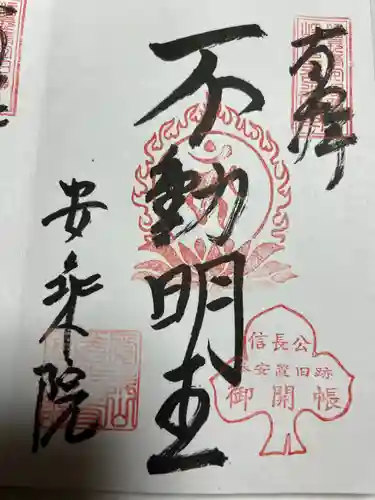 奉拝
不動明王
信長公
本安置旧跡
御開帳
安乗院